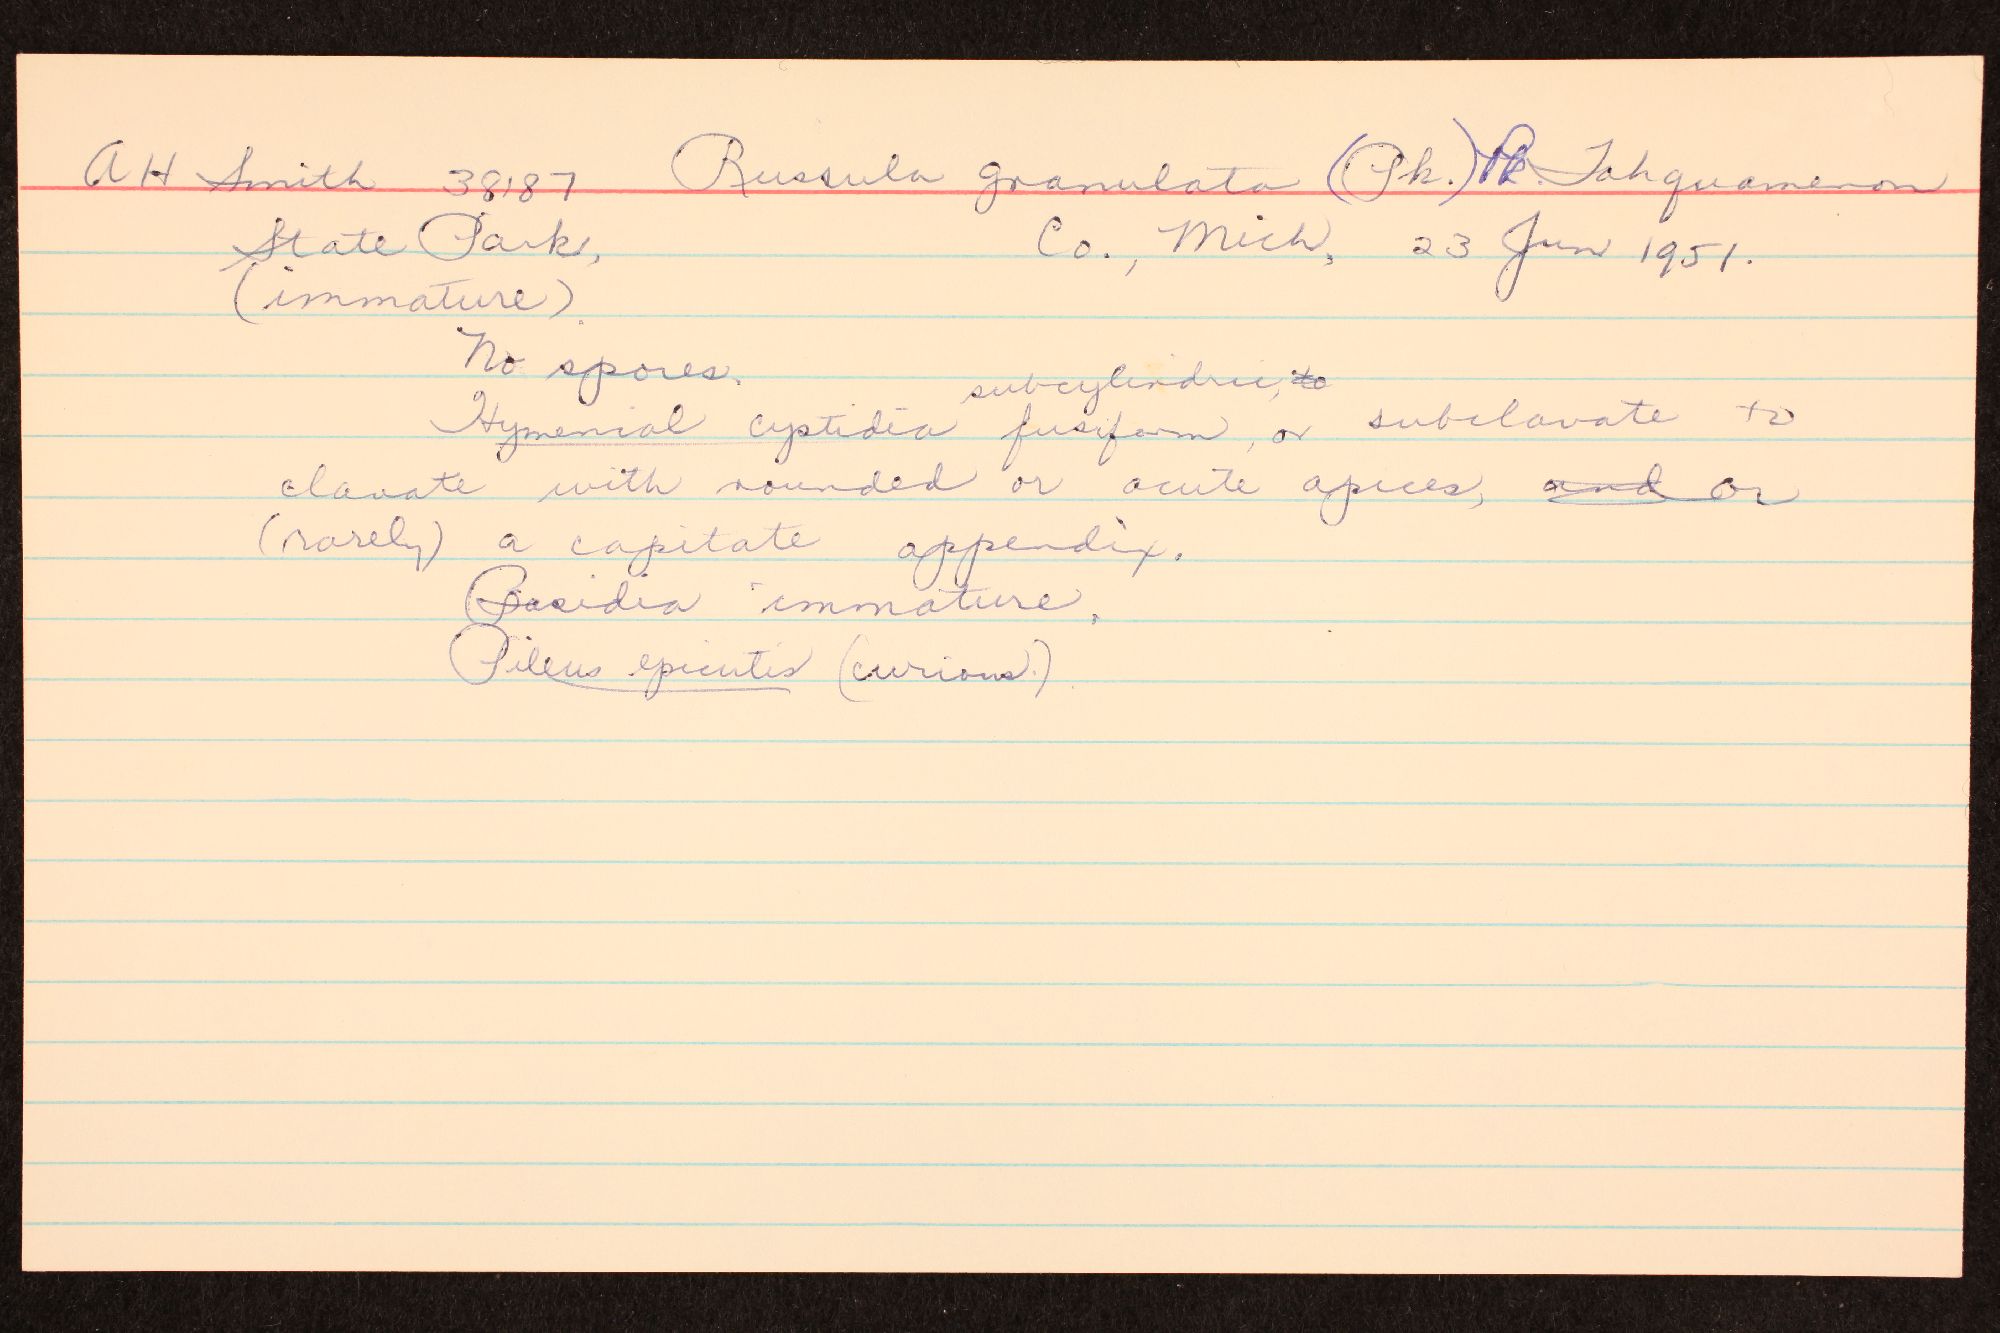 AH Smith 38187 Russula granulata (Pk.) Pk. Tahquamenon
State Park, Co., Mich, 23 Jun 1951.
(immature)
No spores.
subcylindric, to
Hymenial cystidia fusiform, or subclavate to
clavate with rounded or acute apices, and or
(rarely) a capitate appendix.
Basidia immature.
Pileus epicutis (curious!)